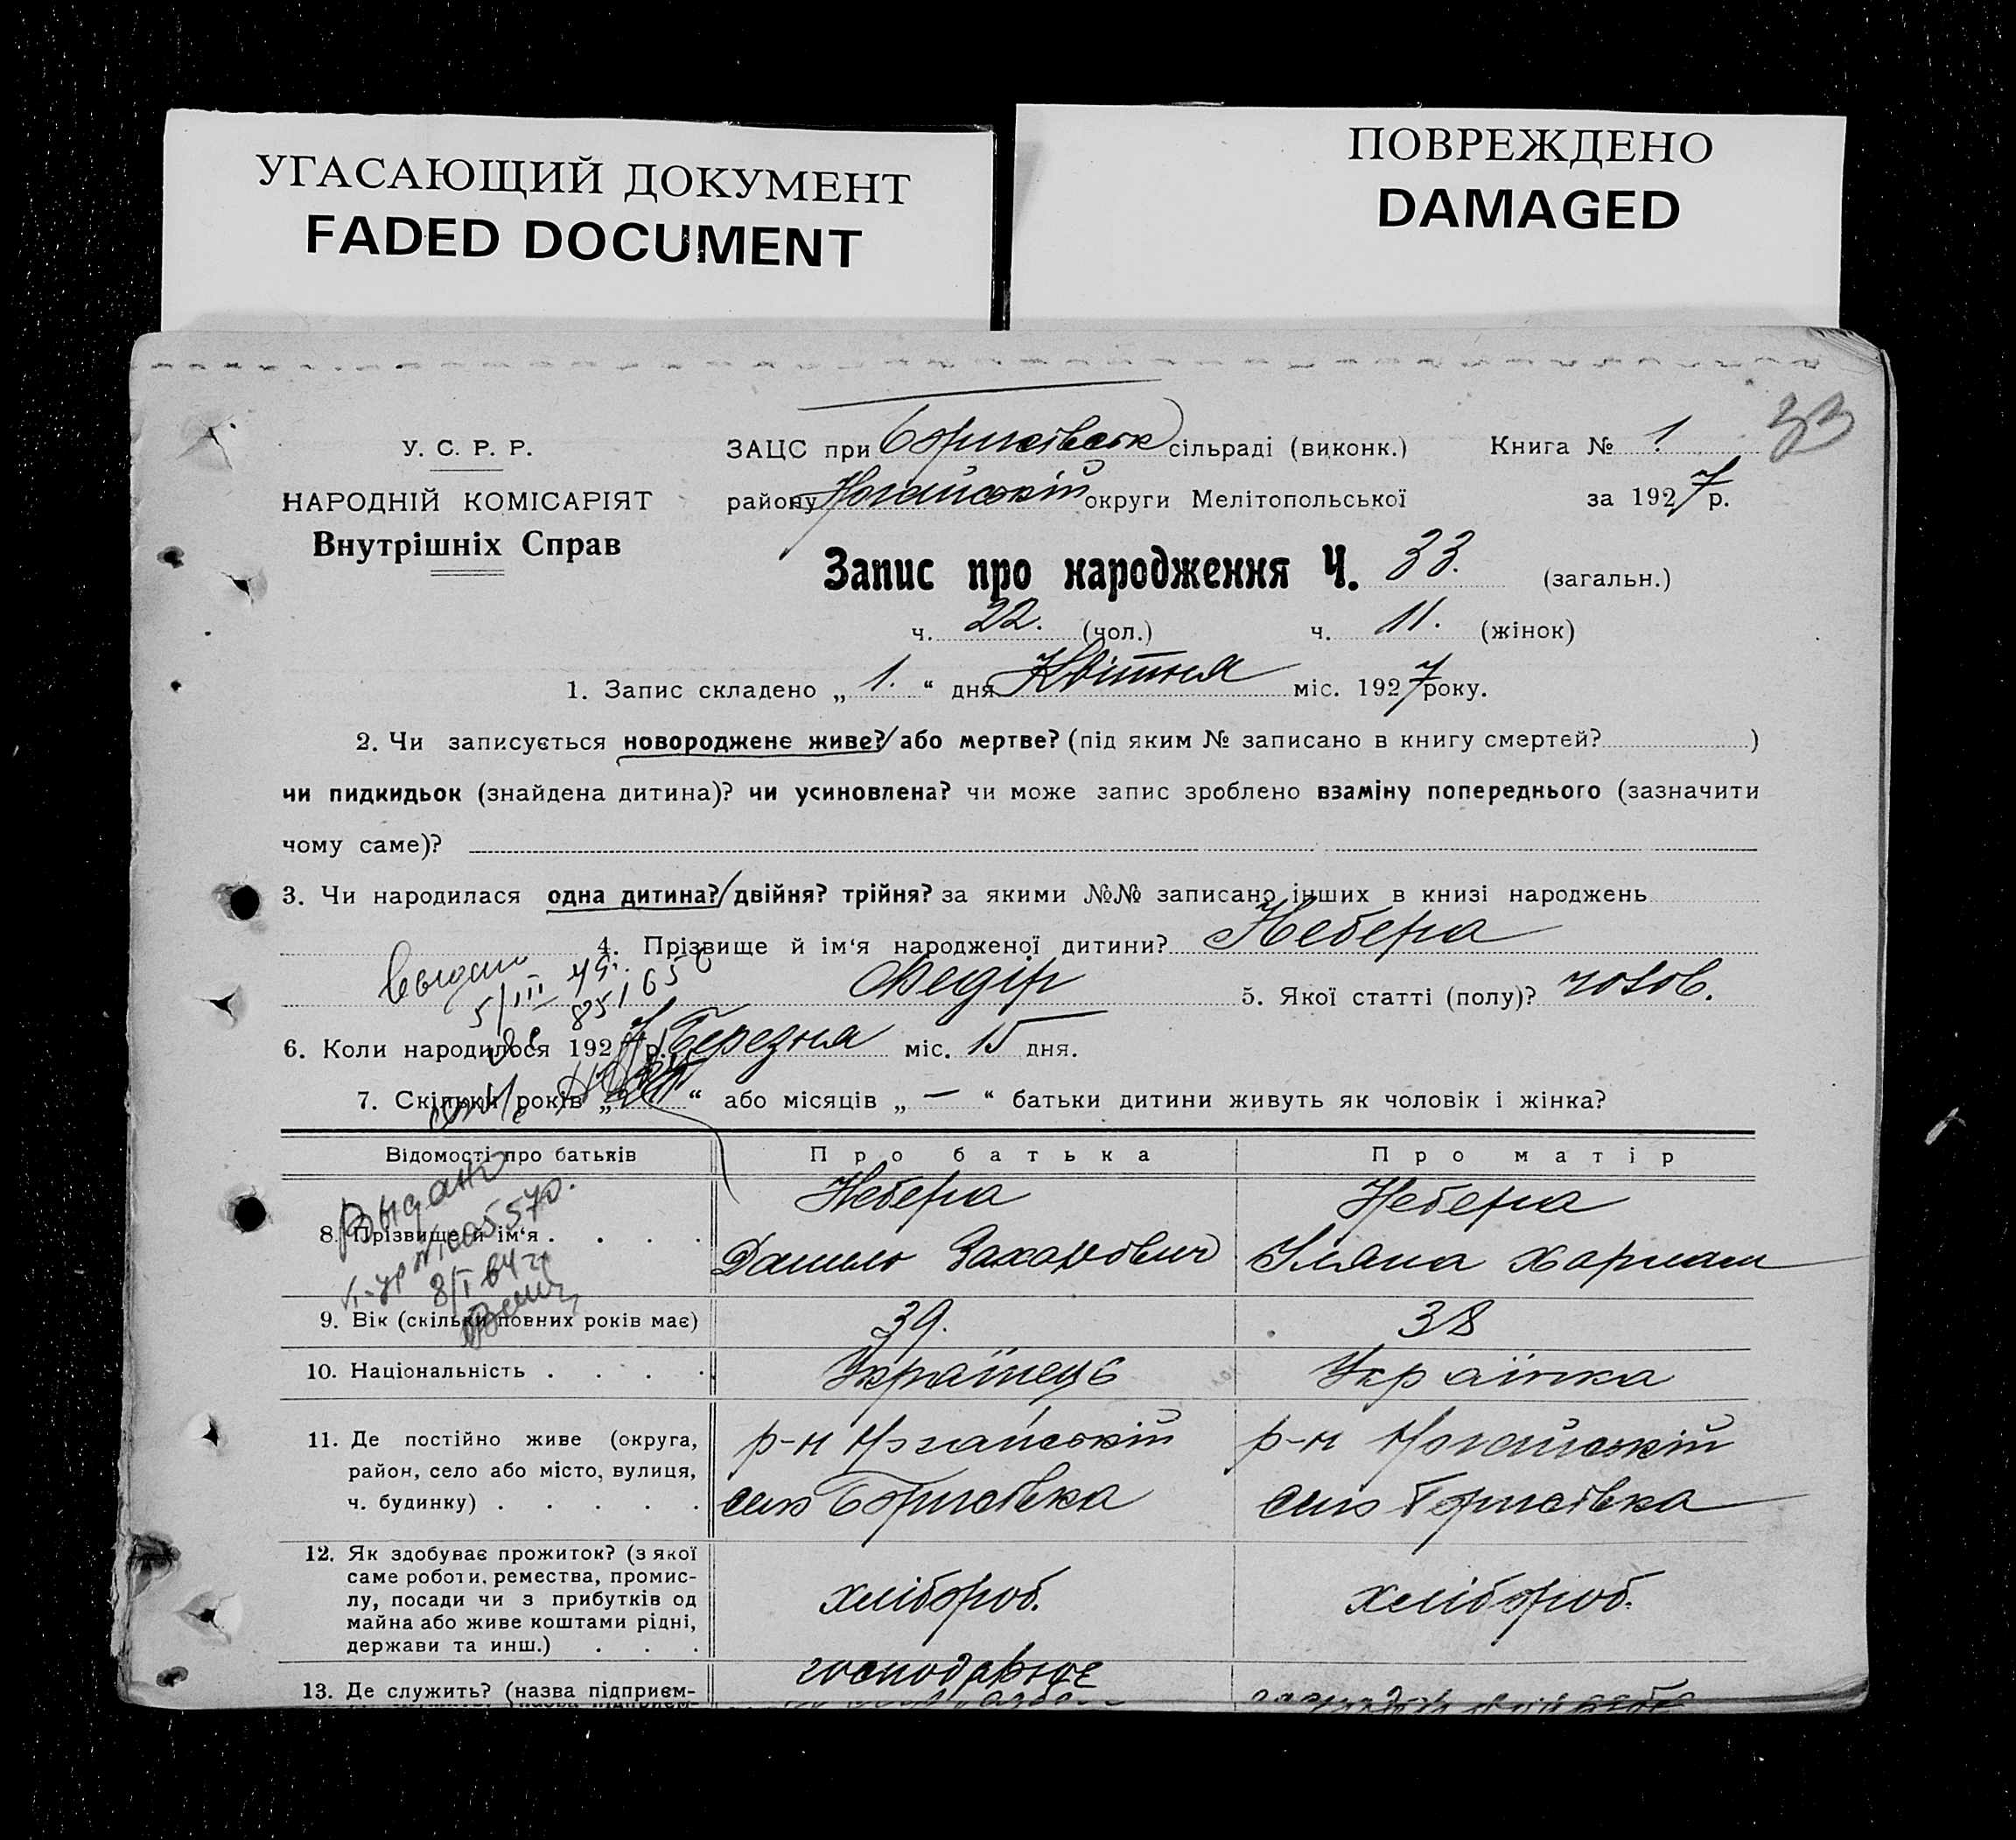 УГАСАЮЩИЙ ДОКУМЕНТ
FADED DOCUMENT
ПОВРЕЖДЕНО
DAMAGED
33
У. С. Р. Р.
НАРОДНІЙ КОМІСАРІЯТ
Внутрішніх Справ
ЗАЦС при Борисівськ сільраді (виконк.) Книга № 1
району Ногайській округи Мелітопольської за 1927 р.
Запис про народження Ч. 33. (загальн.)
ч. 22. (чол.) ч. 11. (жінок)
1. Запис складено „ 1. “ дня Квітня міс. 1927 року.
2. Чи записується новороджене живе? або мертве? (під яким № записано в книгу смертей? )
чи пидкидьок (знайдена дитина)? чи усиновлена? чи може запис зроблено взаміну попереднього (зазначити
чому саме)?
3. Чи народилася одна дитина? двійня? трійня? за якими №№ записано інших в книзі народжень
4. Прізвище й ім‘я народженої дитини? Небера
Федір 5. Якої статті (полу)? чолов.
5/III 49.
6. Коли народилося 1927 р. Березня міс. 15 дня.
7. Скільки років „ “ або місяців „ — “ батьки дитини живуть як чоловік і жінка?
Відомості про батьків Про батька Про матір
Выдано
8/I 64 г
8. Прізвище й ім‘я . . . . . Небера Небера
Данило Захарович Уляна Харлам
9. Вік (скільки повних років має) 39. 38
10. Національність . . . . Українець Українка
11. Де постійно живе (округа, район, село або місто, вулиця, ч. будинку) . . . . .
р-н Ногайській р-н Ногайській
село Борисівка село Борисівка
12. Як здобуває прожиток? (з якої
саме роботи, ремества, промис-
лу, посади чи з прибутків од
майна або живе коштами рідні,
держави та инш.) . . .
хлібороб. хлібороб.
13. Де служить? (назва підприєм-
господарює